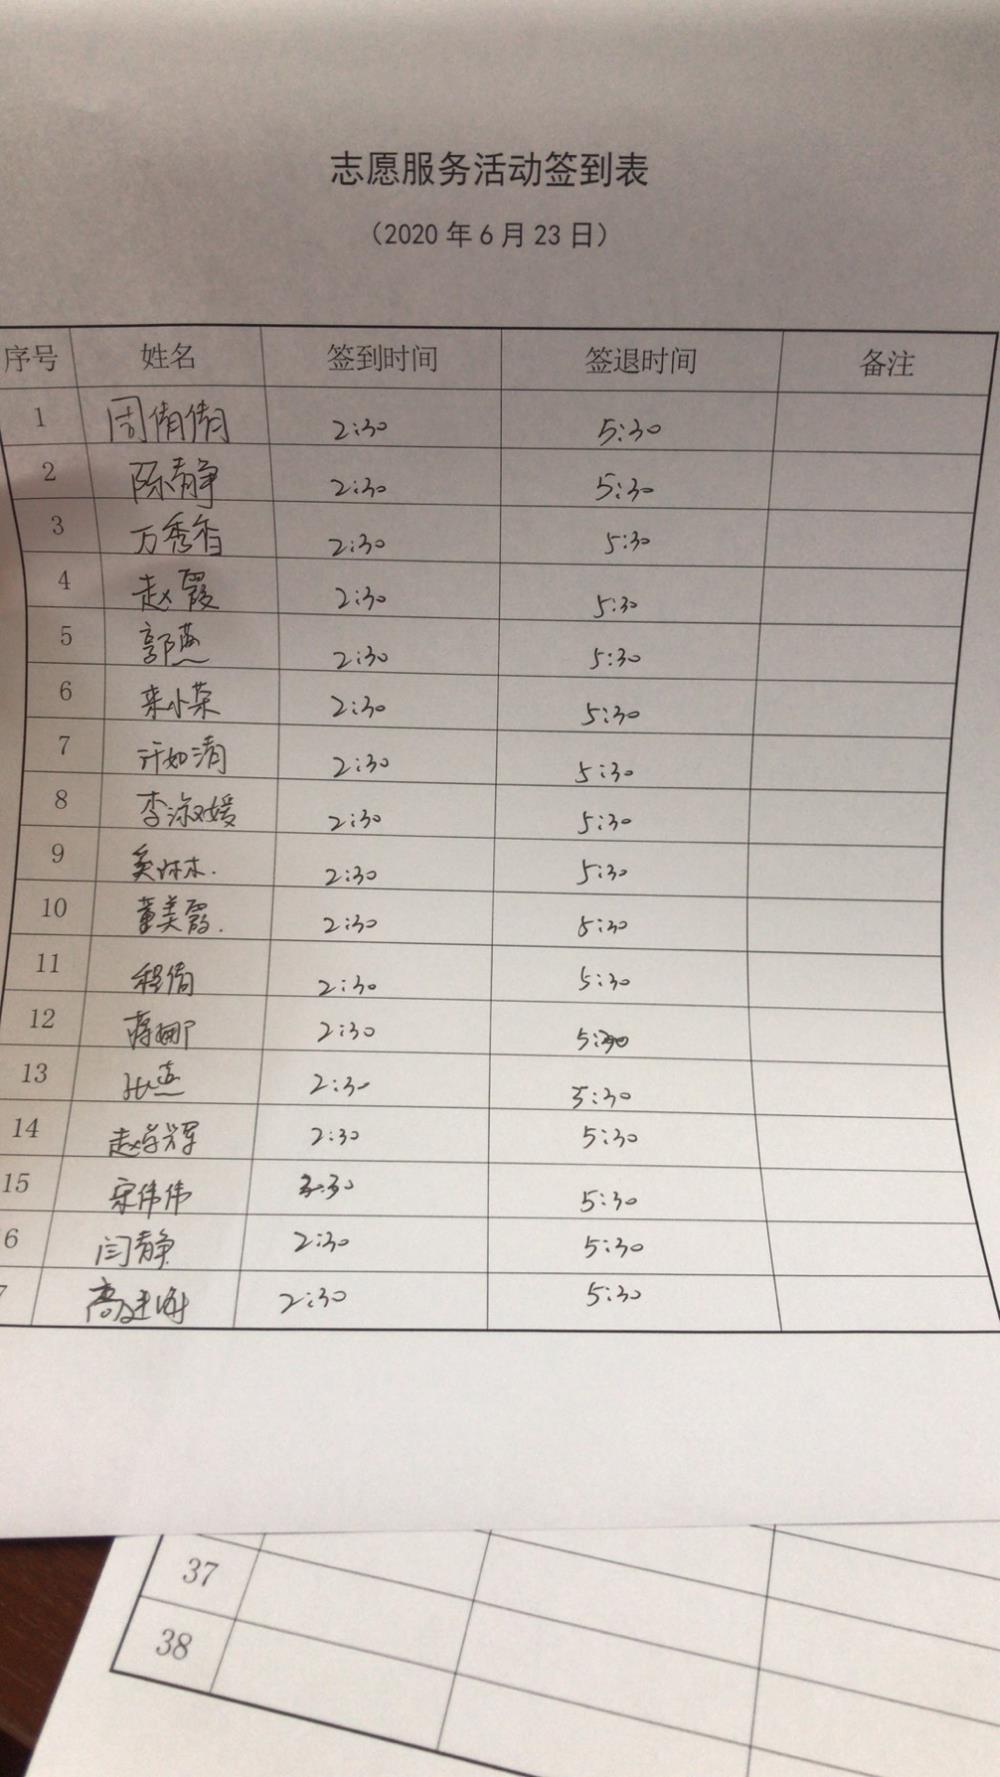 志愿服务活动签到表
（2020 年 6 月 23 日）
序号 姓名 签到时间 签退时间 备注
1 周倩倩 2:30 5:30
2 陈静 2:30 5:30
3 万秀香 2:30 5:30
4 赵霞 2:30 5:30
5 郭燕 2:30 5:30
6 来小荣 2:30 5:30
7 许如清 2:30 5:30
8 李淑媛 2:30 5:30
9 2:30 5:30
10 董美霞. 2:30 5:30
11 程倩 2:30 5:30
12 蒋娜 2:30 5:30
13 张燕 2:30 5:30
14 赵学辉 2:30 5:30
15 宋伟伟 5:30
6 闫静 2:30 5:30
7 2:30 5:30
37
38